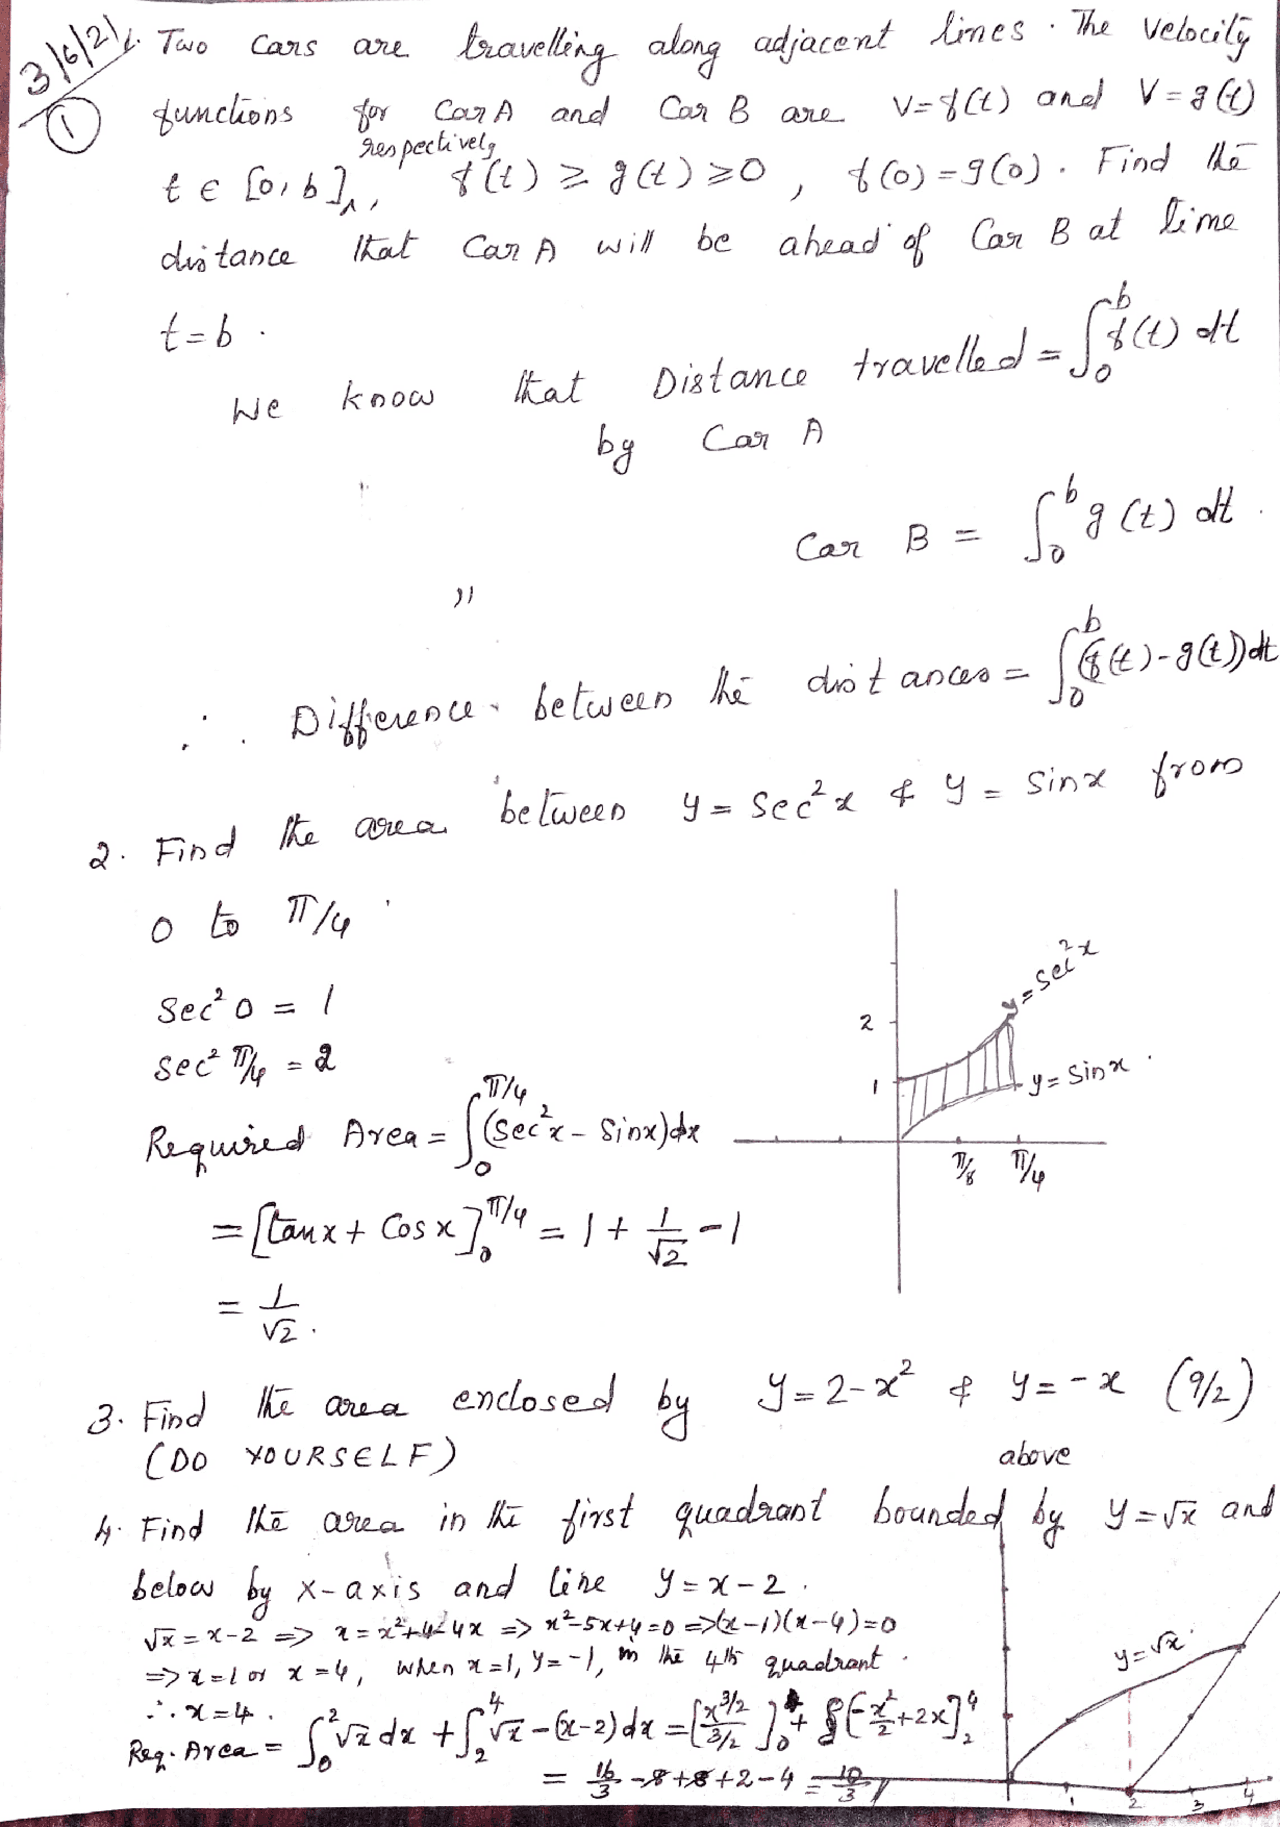 3/6/21
①
1. Two cars are travelling along adjacent lines. The velocity
functions for Car A and Car B are V=f(t) and V=g(t)
respectively
t ∈ [0,b], f(t) ≥ g(t) ≥0, f(0)=g(0). Find the
distance that Car A will be ahead of Car B at time
t=b.
We know that Distance travelled = ∫₀ᵇ f(t) dt
by Car A
Car B = ∫₀ᵇ g(t) dt.
"
∴ Difference between the distances = ∫₀ᵇ (f(t)-g(t))dt
2. Find the area between y = Sec²x & y = Sinx from
0 to π/4.
Sec²0 = 1
Sec² π/4 = 2
Required Area = ∫₀^π/4 (Sec²x - Sinx)dx
= [tanx + Cosx]₀^π/4 = 1 + 1/√2 - 1
= 1/√2.
y=Sec²x
2
1
y=Sinx.
π/8 π/4
3. Find the area enclosed by y=2-x² & y=-x (9/2)
(DO YOURSELF)
above
4. Find the area in the first quadrant bounded by y=√x and
below by x-axis and line y=x-2.
√x = x-2 => x = x²+4-4x => x²-5x+4=0 =>(x-1)(x-4)=0
=> x=1 or x=4, when x=1, y=-1, in the 4th quadrant.
∴ x=4.
Req. Area = ∫₀² √x dx + ∫₂⁴ √x-(x-2)dx = [x^3/2 / 3/2]₀⁴ + [-x²/2+2x]₂⁴
= 16/3 -8+8+2-4 = 10/3 //
y=√x
1 2 3 4